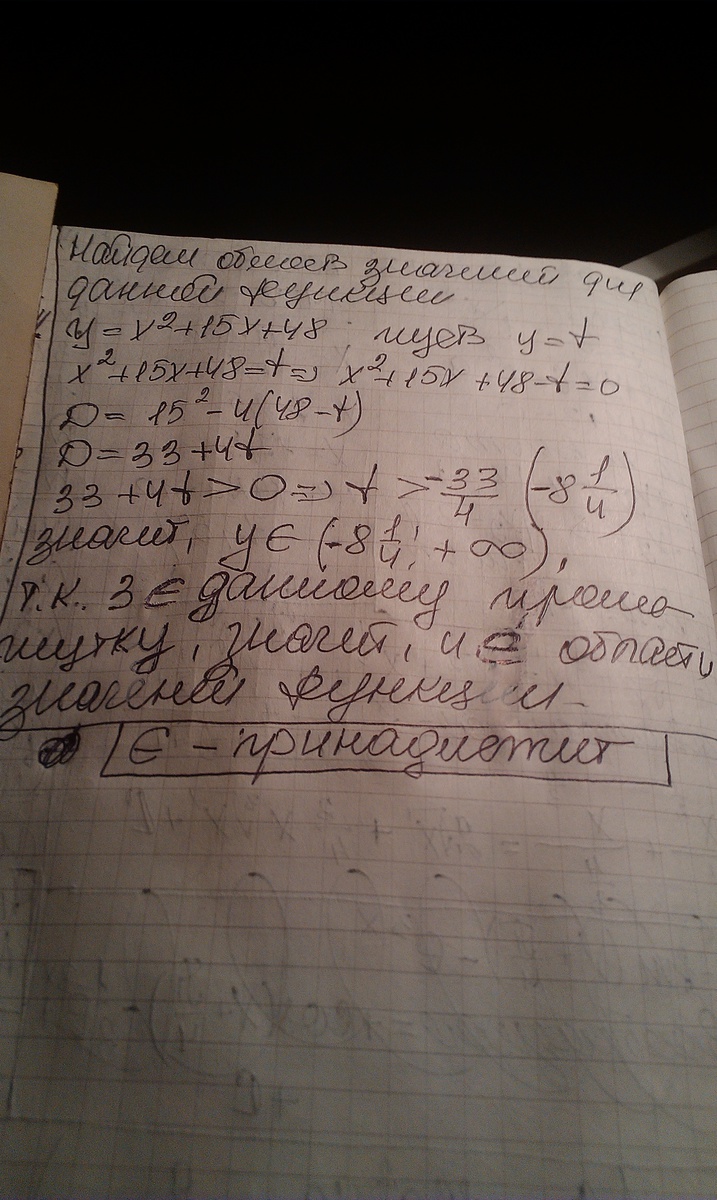 Найдем область значений для
данной функции
y = x²+15x+48, пусть y=t
x²+15x+48=t => x²+15x+48-t=0
D = 15²-4(48-t)
D=33+4t
33+4t>0 => t > -33/4 (-8 1/4)
значит, y ∈ (-8 1/4; +∞),
т.к. 3 ∈ данному проме-
жутку, значит, и ∈ области
значений функции.
∈ - принадлежит